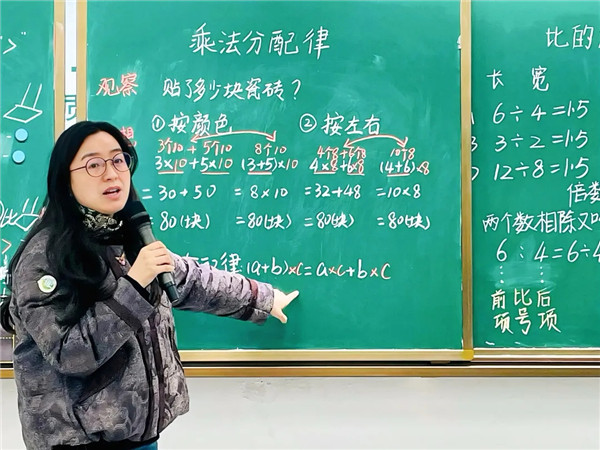 乘法分配律
观察 贴了多少块瓷砖?
①按颜色 ②按左右
3个10 + 5个10 8个10 4个8+6个8 10个8
3×10+5×10 (3+5)×10 4×8+6×8 (4+6)×8
=30+50 =8×10 =32+48 =10×8
=80(块) =80(块) =80(块) =80(块)
律:(a+b)×c=a×c+b×c
比的
长 宽
6÷4=1.5
3÷2=1.5
12÷8=1.5
倍数
两个数相除又叫
6:4=6÷4
前 比 后
项 号 项